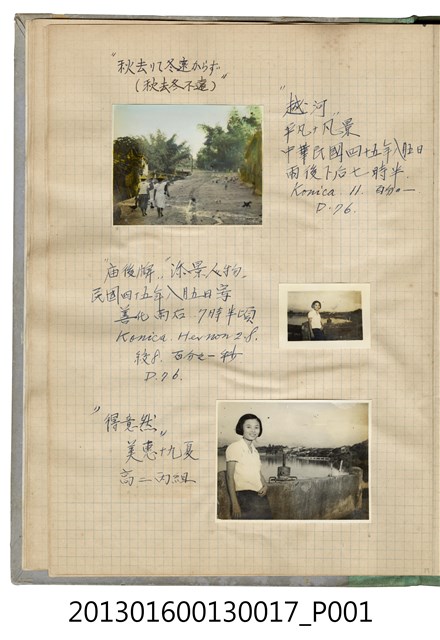 "秋去りて冬遠からず
(秋去冬不遠)"
"越河"
平凡ナ風景
中華民國四十五年八月五日
雨後下后七時半
Konica. 11.
D.76.
"庙後解" 添景人物。
民國四十五年八月五日
善化 雨后 7時半頃
Konica. Hexnon 2.8.
D.76.
"得意然"
美惠十九夏
高二丙組
201301600130017_P001